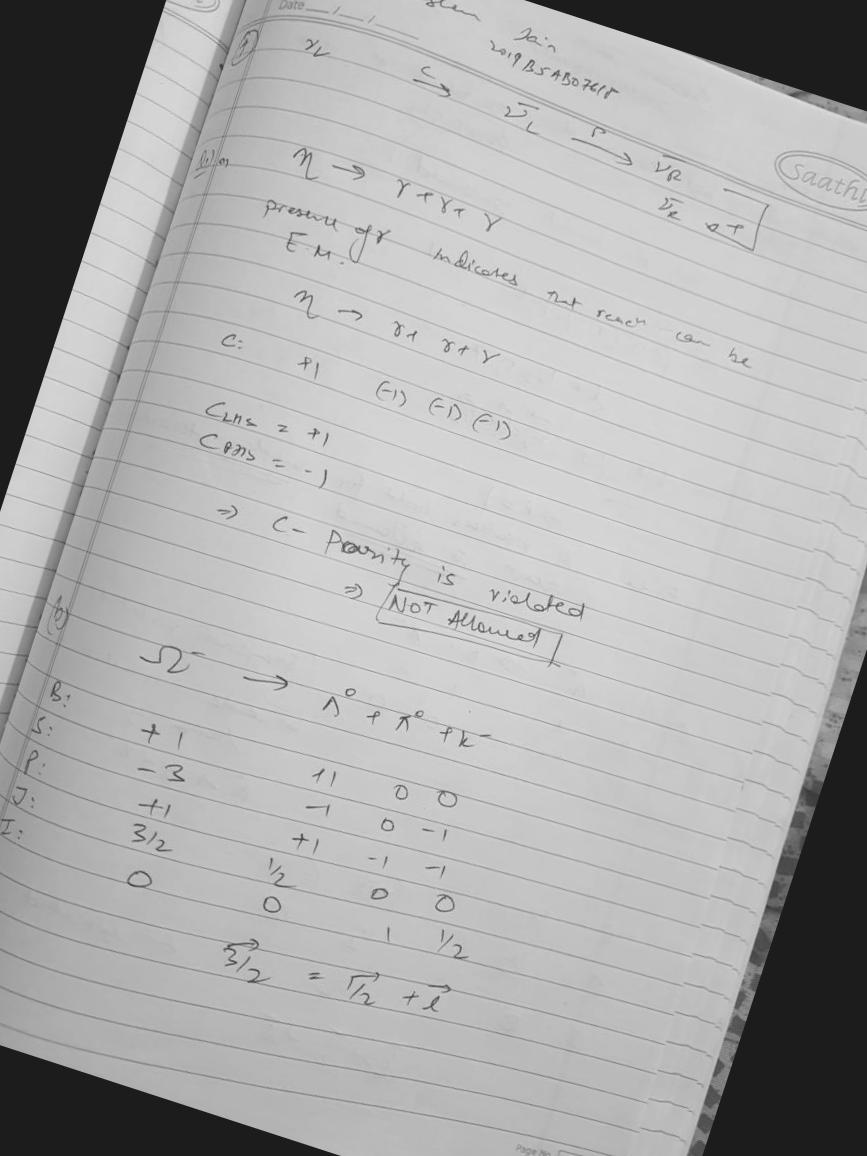 Date __/__/__
Jain
2019B5AB0761P
saathi
ν_L →(C) ν̄_L →(P) ν̄_R
η → γ + γ + γ
presence of γ indicates that can be
E.M.
η → γ + γ + γ
C: +1 (-1) (-1) (-1)
C_LHS = +1
C_RHS = -1
⇒ C- Parity is violated
⇒ NOT Allowed
(b)
Ω⁻ → Λ⁰ + π⁰ + k⁻
B: +1 +1 0 0
S: -3 -1 0 -1
P: +1 +1 -1 -1
J: 3/2 1/2 0 0
I: 0 0 1 1/2
3/2 = 1/2 + l
Page No.